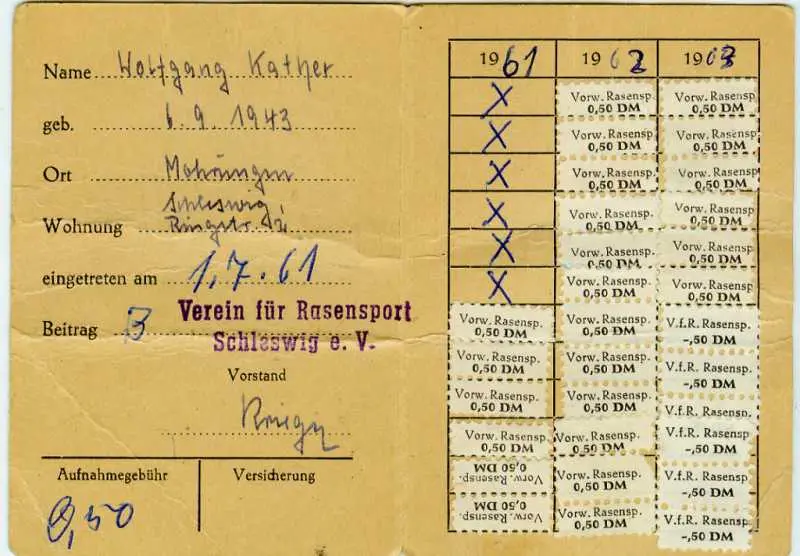 Name Wolfgang Kather
geb. 6.9.1943
Ort Mohrungen
Schleswig,
Wohnung Ringstr.
eingetreten am 1.7.61
Beitrag 3
Verein für Rasensport
Schleswig e. V.
Vorstand
Aufnahmegebühr Versicherung
0,50
1961 1962 1963
X Vorw. Rasensp. Vorw. Rasensp.
0,50 DM 0,50 DM
X Vorw. Rasensp. Vorw. Rasensp
0,50 DM 0,50 DM
X Vorw. Rasensp. Vorw. Rasensp.
0,50 DM 0,50 DM
X Vorw. Rasensp. Vorw. Rasensp
0,50 DM 0,50 DM
X Vorw. Rasensp. Vorw. Rasensp.
0,50 DM 0,50 DM
X Vorw. Rasensp. Vorw. Rasensp.
0,50 DM 0,50 DM
Vorw. Rasensp. Vorw. Rasensp. V.f.R. Rasensp.
0,50 DM 0,50 DM -,50 DM
Vorw. Rasensp. Vorw. Rasensp. V.f.R. Rasensp.
0,50 DM 0,50 DM -,50 DM
Vorw. Rasensp. Vorw. Rasensp. V.f.R. Rasensp
0,50 DM 0,50 DM
Vorw. Rasensp. Vorw. Rasensp. V.f.R. Rasensp
0,50 DM 0,50 DM -,50 DM
Vorw. Rasensp. Vorw. Rasensp. V.f.R. Rasensp
0,50 DM 0,50 DM -,50 DM
Vorw. Rasensp. Vorw. Rasensp. V.f.R. Rasensp.
0,50 DM 0,50 DM -,50 DM